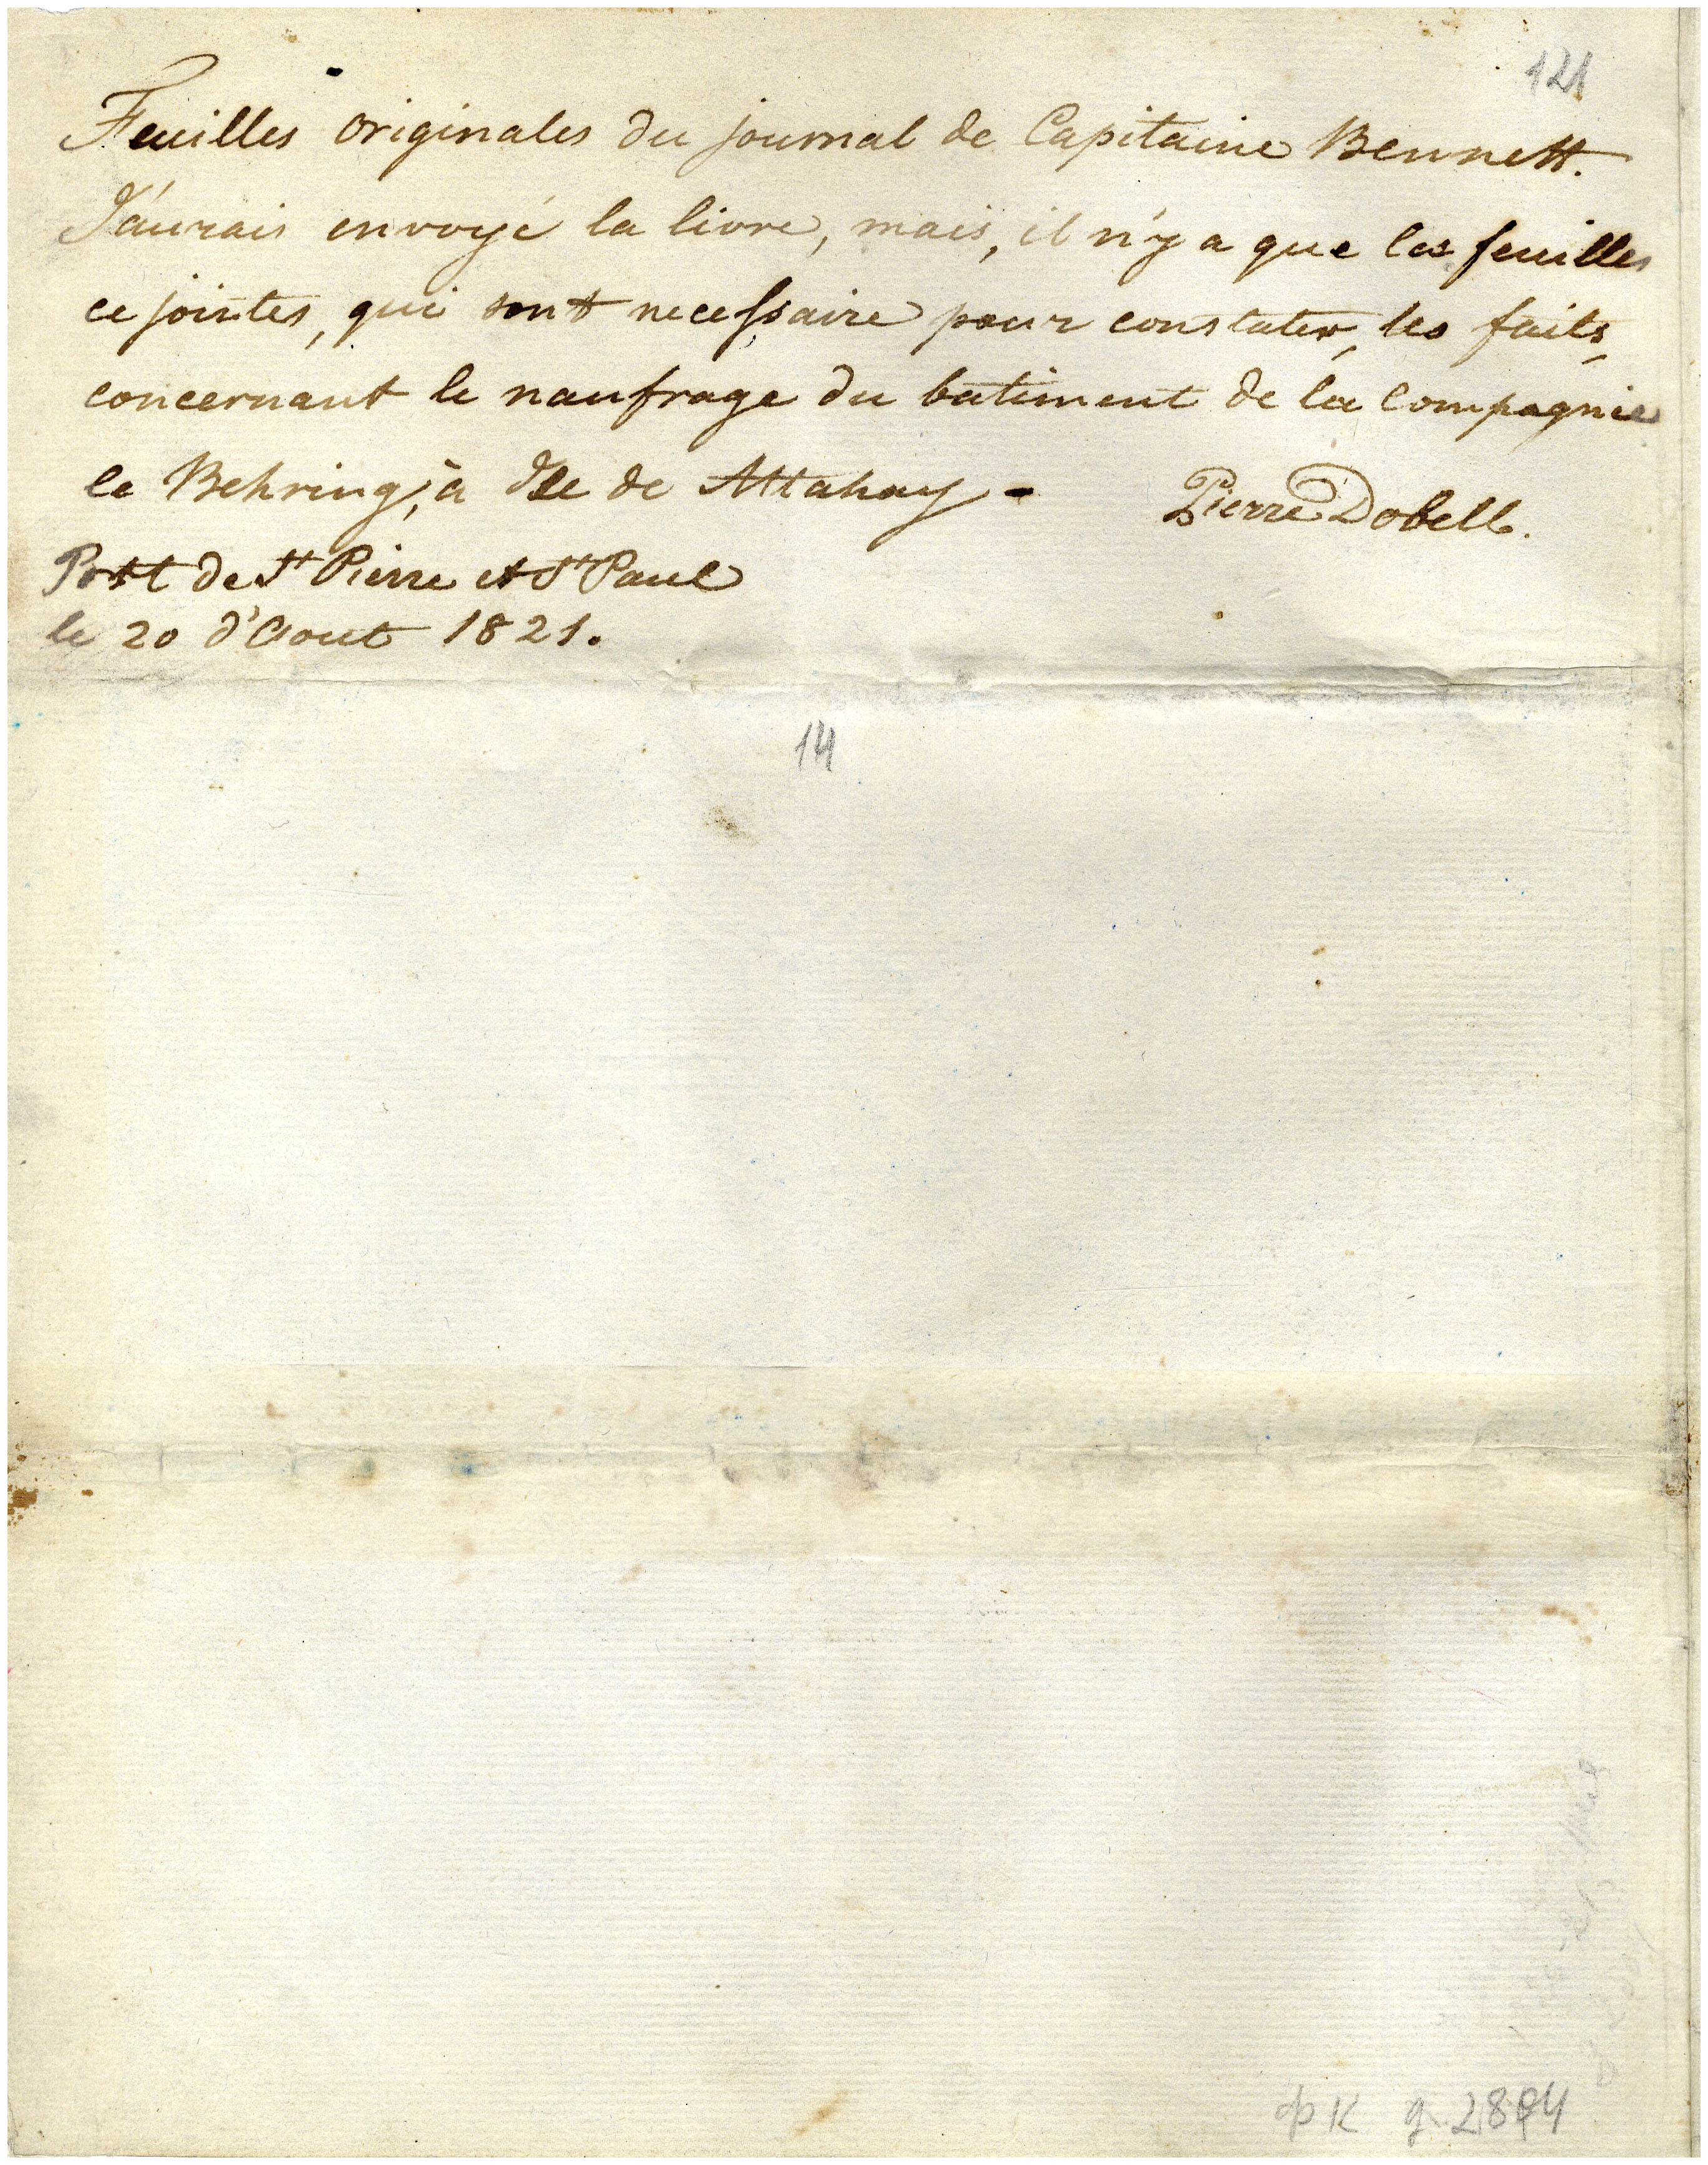 121
Feuilles originales du journal de Capitaine Bennett.
J'áurais envoyé la livre, mais, il n'y a que les feuilles
ce jointes, qui sont necessaire pour constater, les faits,
concernant le naufrage du batiment de la Compagnie
le Behring, à Isle de Attahay -
Pierre Dobell.
Port de St Pierre et St Paul
le 20 d'Aout 1821.
14
фК д. 2894